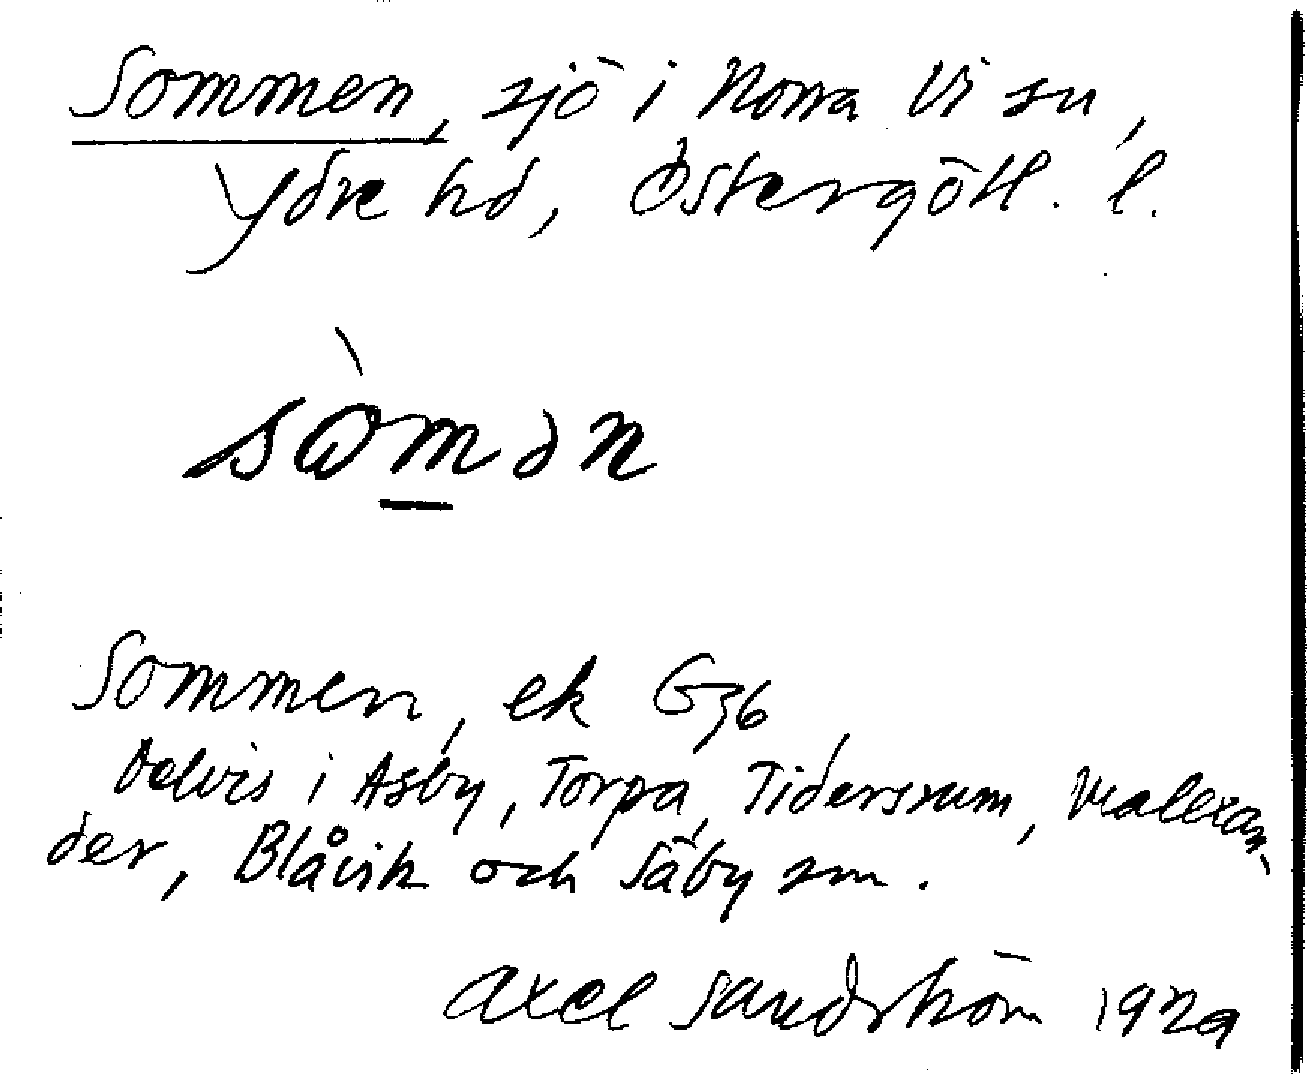 Sommen, sjö i Norra Vi sn,
Ydre hd, Östergötl. l.
sòmən
Sommen, ek G36
Delvis i Asby, Torpa, Tidersrum, Malexan-
der, Blåvik och Säby snr.
Axel Sandström 1929